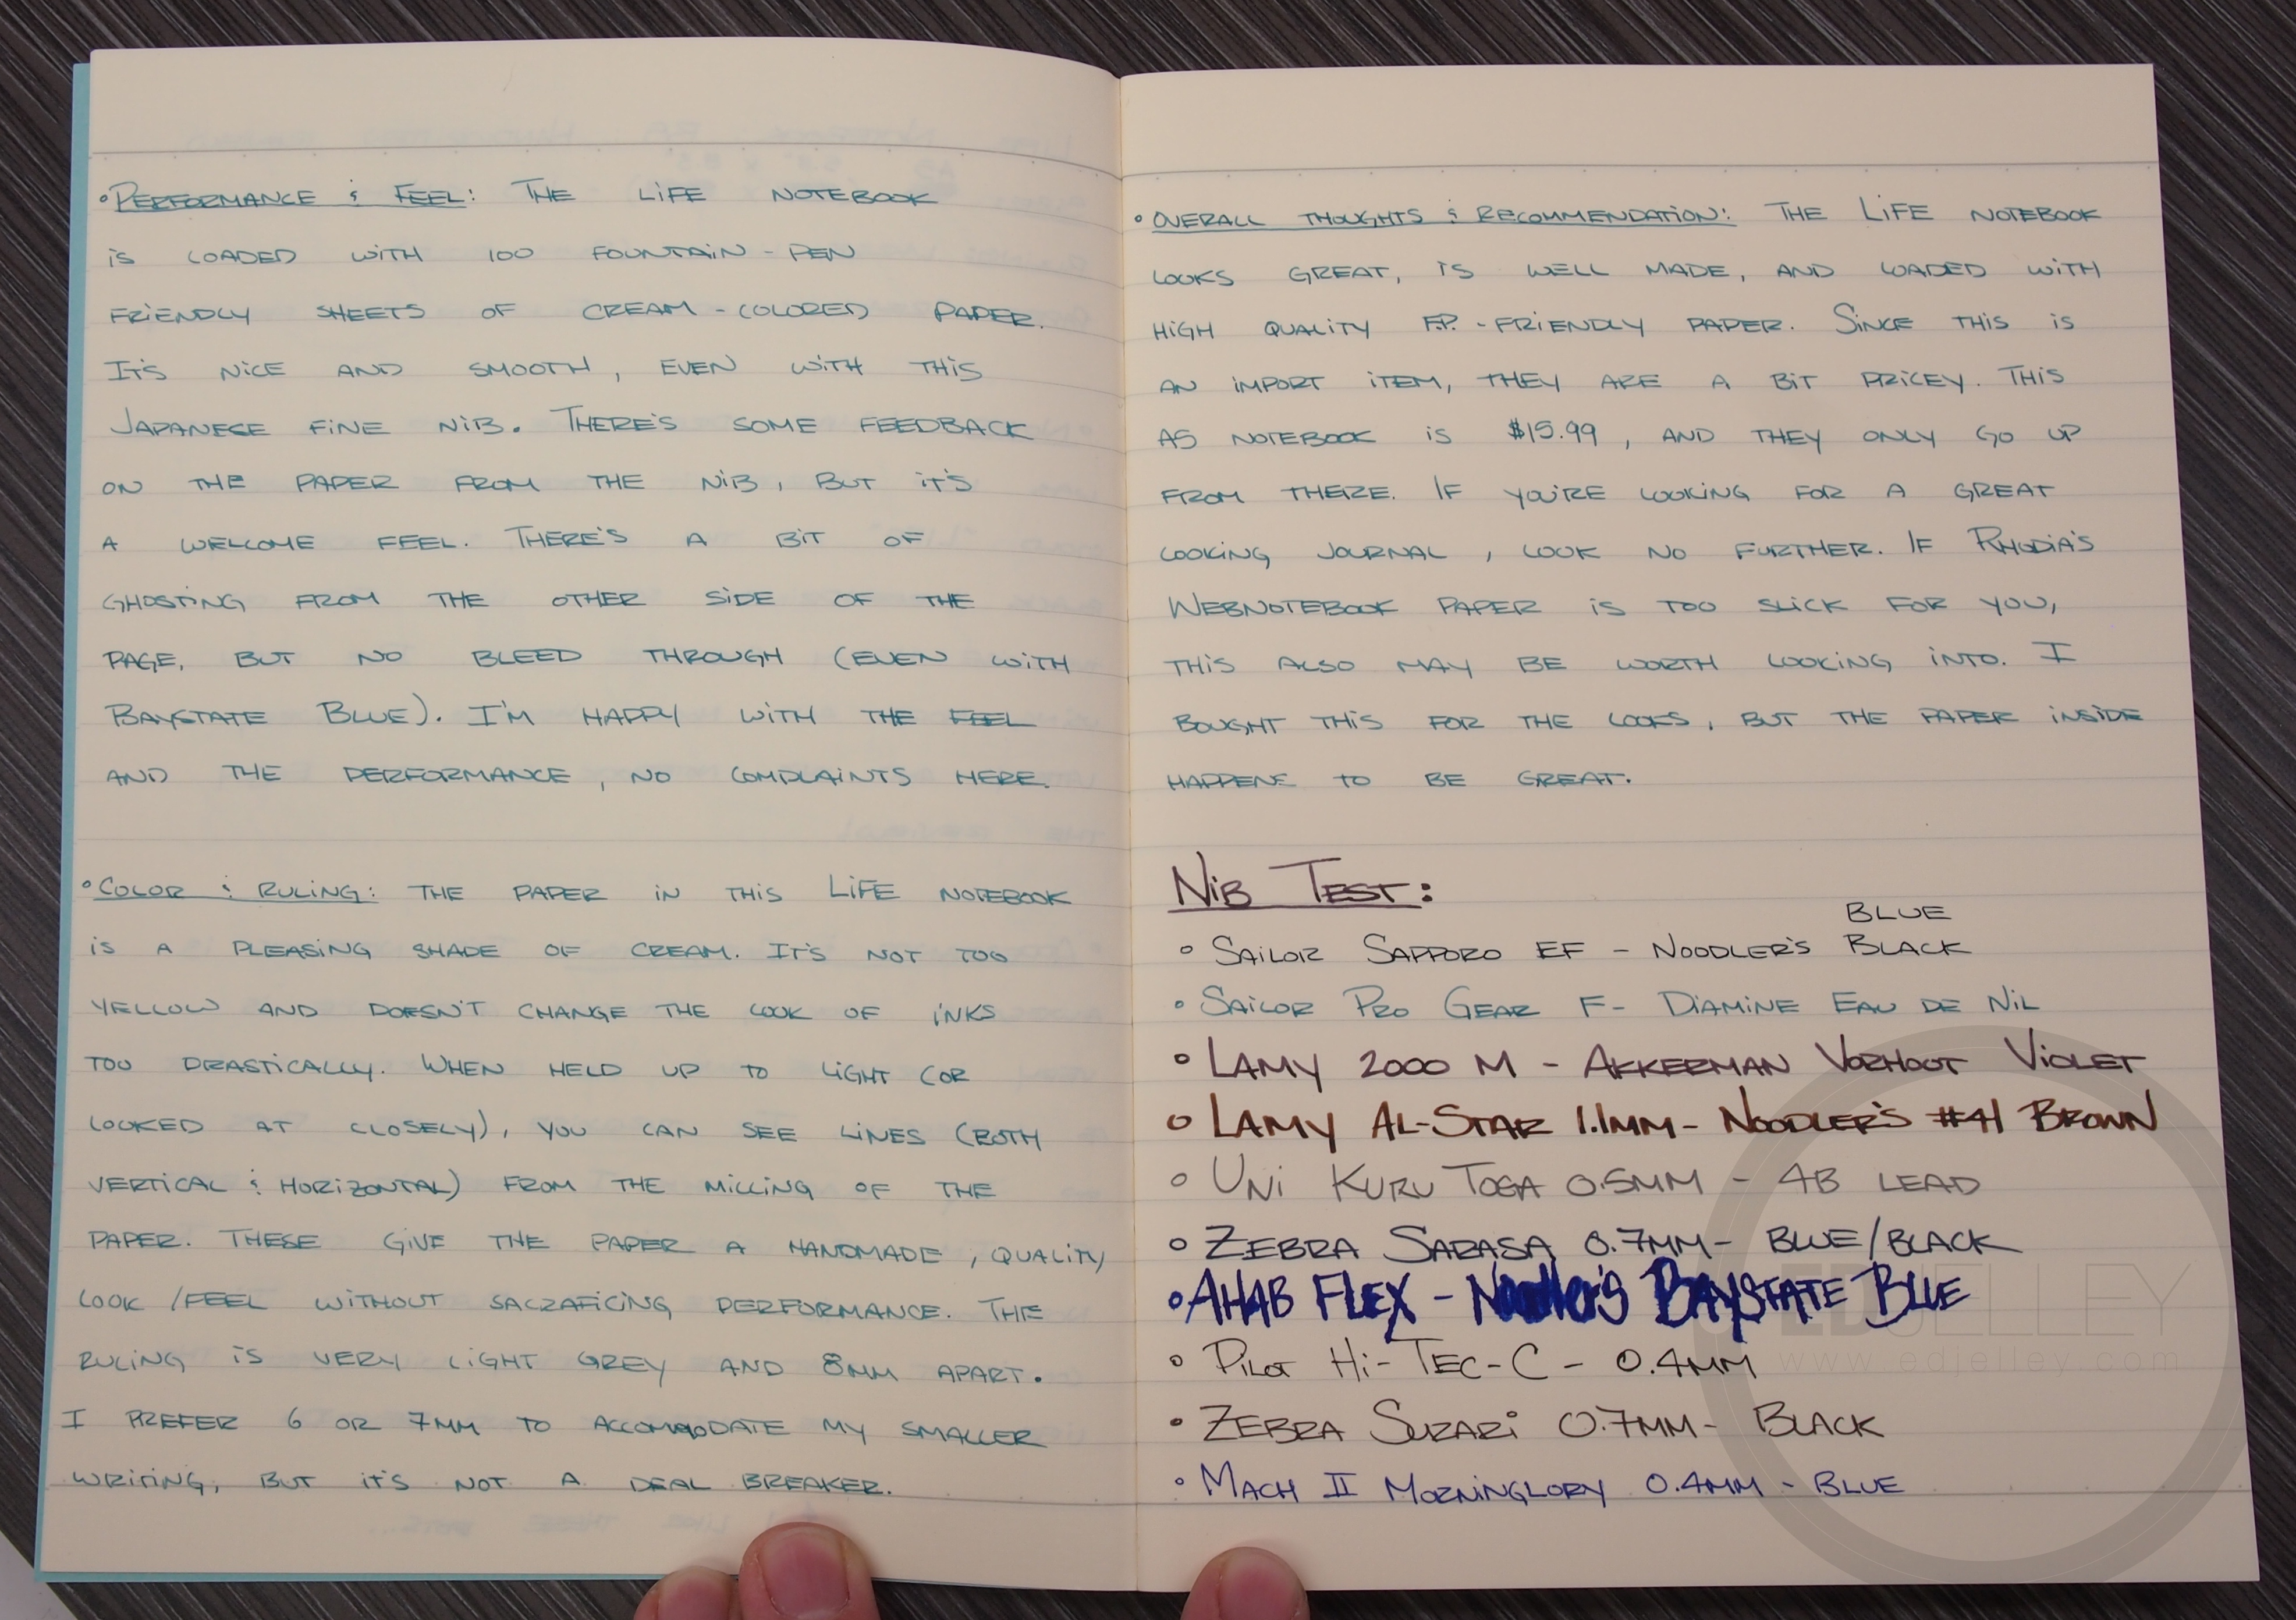 •PERFORMANCE & FEEL: THE LIFE NOTEBOOK
IS LOADED WITH 100 FOUNTAIN-PEN
FRIENDLY SHEETS OF CREAM-COLORED PAPER.
IT'S NICE AND SMOOTH, EVEN WITH THIS
JAPANESE FINE NIB. THERE'S SOME FEEDBACK
ON THE PAPER FROM THE NIB, BUT IT'S
A WELCOME FEEL. THERE'S A BIT OF
GHOSTING FROM THE OTHER SIDE OF THE
PAGE, BUT NO BLEED THROUGH (EVEN WITH
BAYSTATE BLUE). I'M HAPPY WITH THE FEEL
AND THE PERFORMANCE, NO COMPLAINTS HERE.
•COLOR & RULING: THE PAPER IN THIS LIFE NOTEBOOK
IS A PLEASING SHADE OF CREAM. IT'S NOT TOO
YELLOW AND DOESN'T CHANGE THE LOOK OF INKS
TOO DRASTICALLY. WHEN HELD UP TO LIGHT (OR
LOOKED AT CLOSELY), YOU CAN SEE LINES (BOTH
VERTICAL & HORIZONTAL) FROM THE MILLING OF THE
PAPER. THESE GIVE THE PAPER A HANDMADE, QUALITY
LOOK/FEEL WITHOUT SACRAFICING PERFORMANCE. THE
RULING IS VERY LIGHT GREY AND 8MM APART.
I PREFER 6 OR 7MM TO ACCOMMODATE MY SMALLER
WRITING, BUT IT'S NOT A DEAL BREAKER.
•OVERALL THOUGHTS & RECOMMENDATION: THE LIFE NOTEBOOK
LOOKS GREAT, IS WELL MADE, AND LOADED WITH
HIGH QUALITY F.P.-FRIENDLY PAPER. SINCE THIS IS
AN IMPORT ITEM, THEY ARE A BIT PRICEY. THIS
A5 NOTEBOOK IS $15.99, AND THEY ONLY GO UP
FROM THERE. IF YOU'RE LOOKING FOR A GREAT
LOOKING JOURNAL, LOOK NO FURTHER. IF RHODIA'S
WEBNOTEBOOK PAPER IS TOO SLICK FOR YOU,
THIS ALSO MAY BE WORTH LOOKING INTO. I
BOUGHT THIS FOR THE LOOKS, BUT THE PAPER INSIDE
HAPPENS TO BE GREAT.
NIB TEST:
BLUE
•SAILOR SAPPORO EF - NOODLER'S BLACK
•SAILOR PRO GEAR F- DIAMINE EAU DE NIL
•LAMY 2000 M - AKKERMAN VORHOUT VIOLET
•LAMY AL-STAR 1.1MM- NOODLER'S #41 BROWN
•UNI KURU TOGA 0.5MM - 4B LEAD
•ZEBRA SARASA 0.7MM- BLUE/BLACK
•AHAB FLEX - Noodler's BAYSTATE BLUE
•PILOT HI-TEC-C - 0.4MM
•ZEBRA SURARI 0.7MM- BLACK
•MACH II MORNINGLORY 0.4MM - BLUE
EDJELLEY
www.edjelley.com